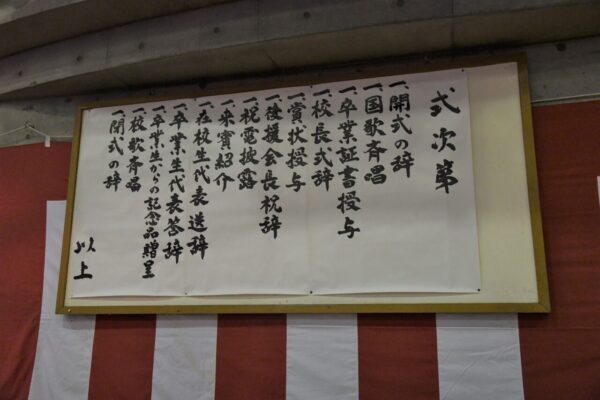 式次第
一、開式の辞
一、国歌斉唱
一、卒業証書授与
一、校長式辞
一、賞状授与
一、後援会長祝辞
一、祝電披露
一、来賓紹介
一、在校生代表送辞
一、卒業生代表答辞
一、卒業生からの記念品贈呈
一、校歌斉唱
一、閉式の辞
以上